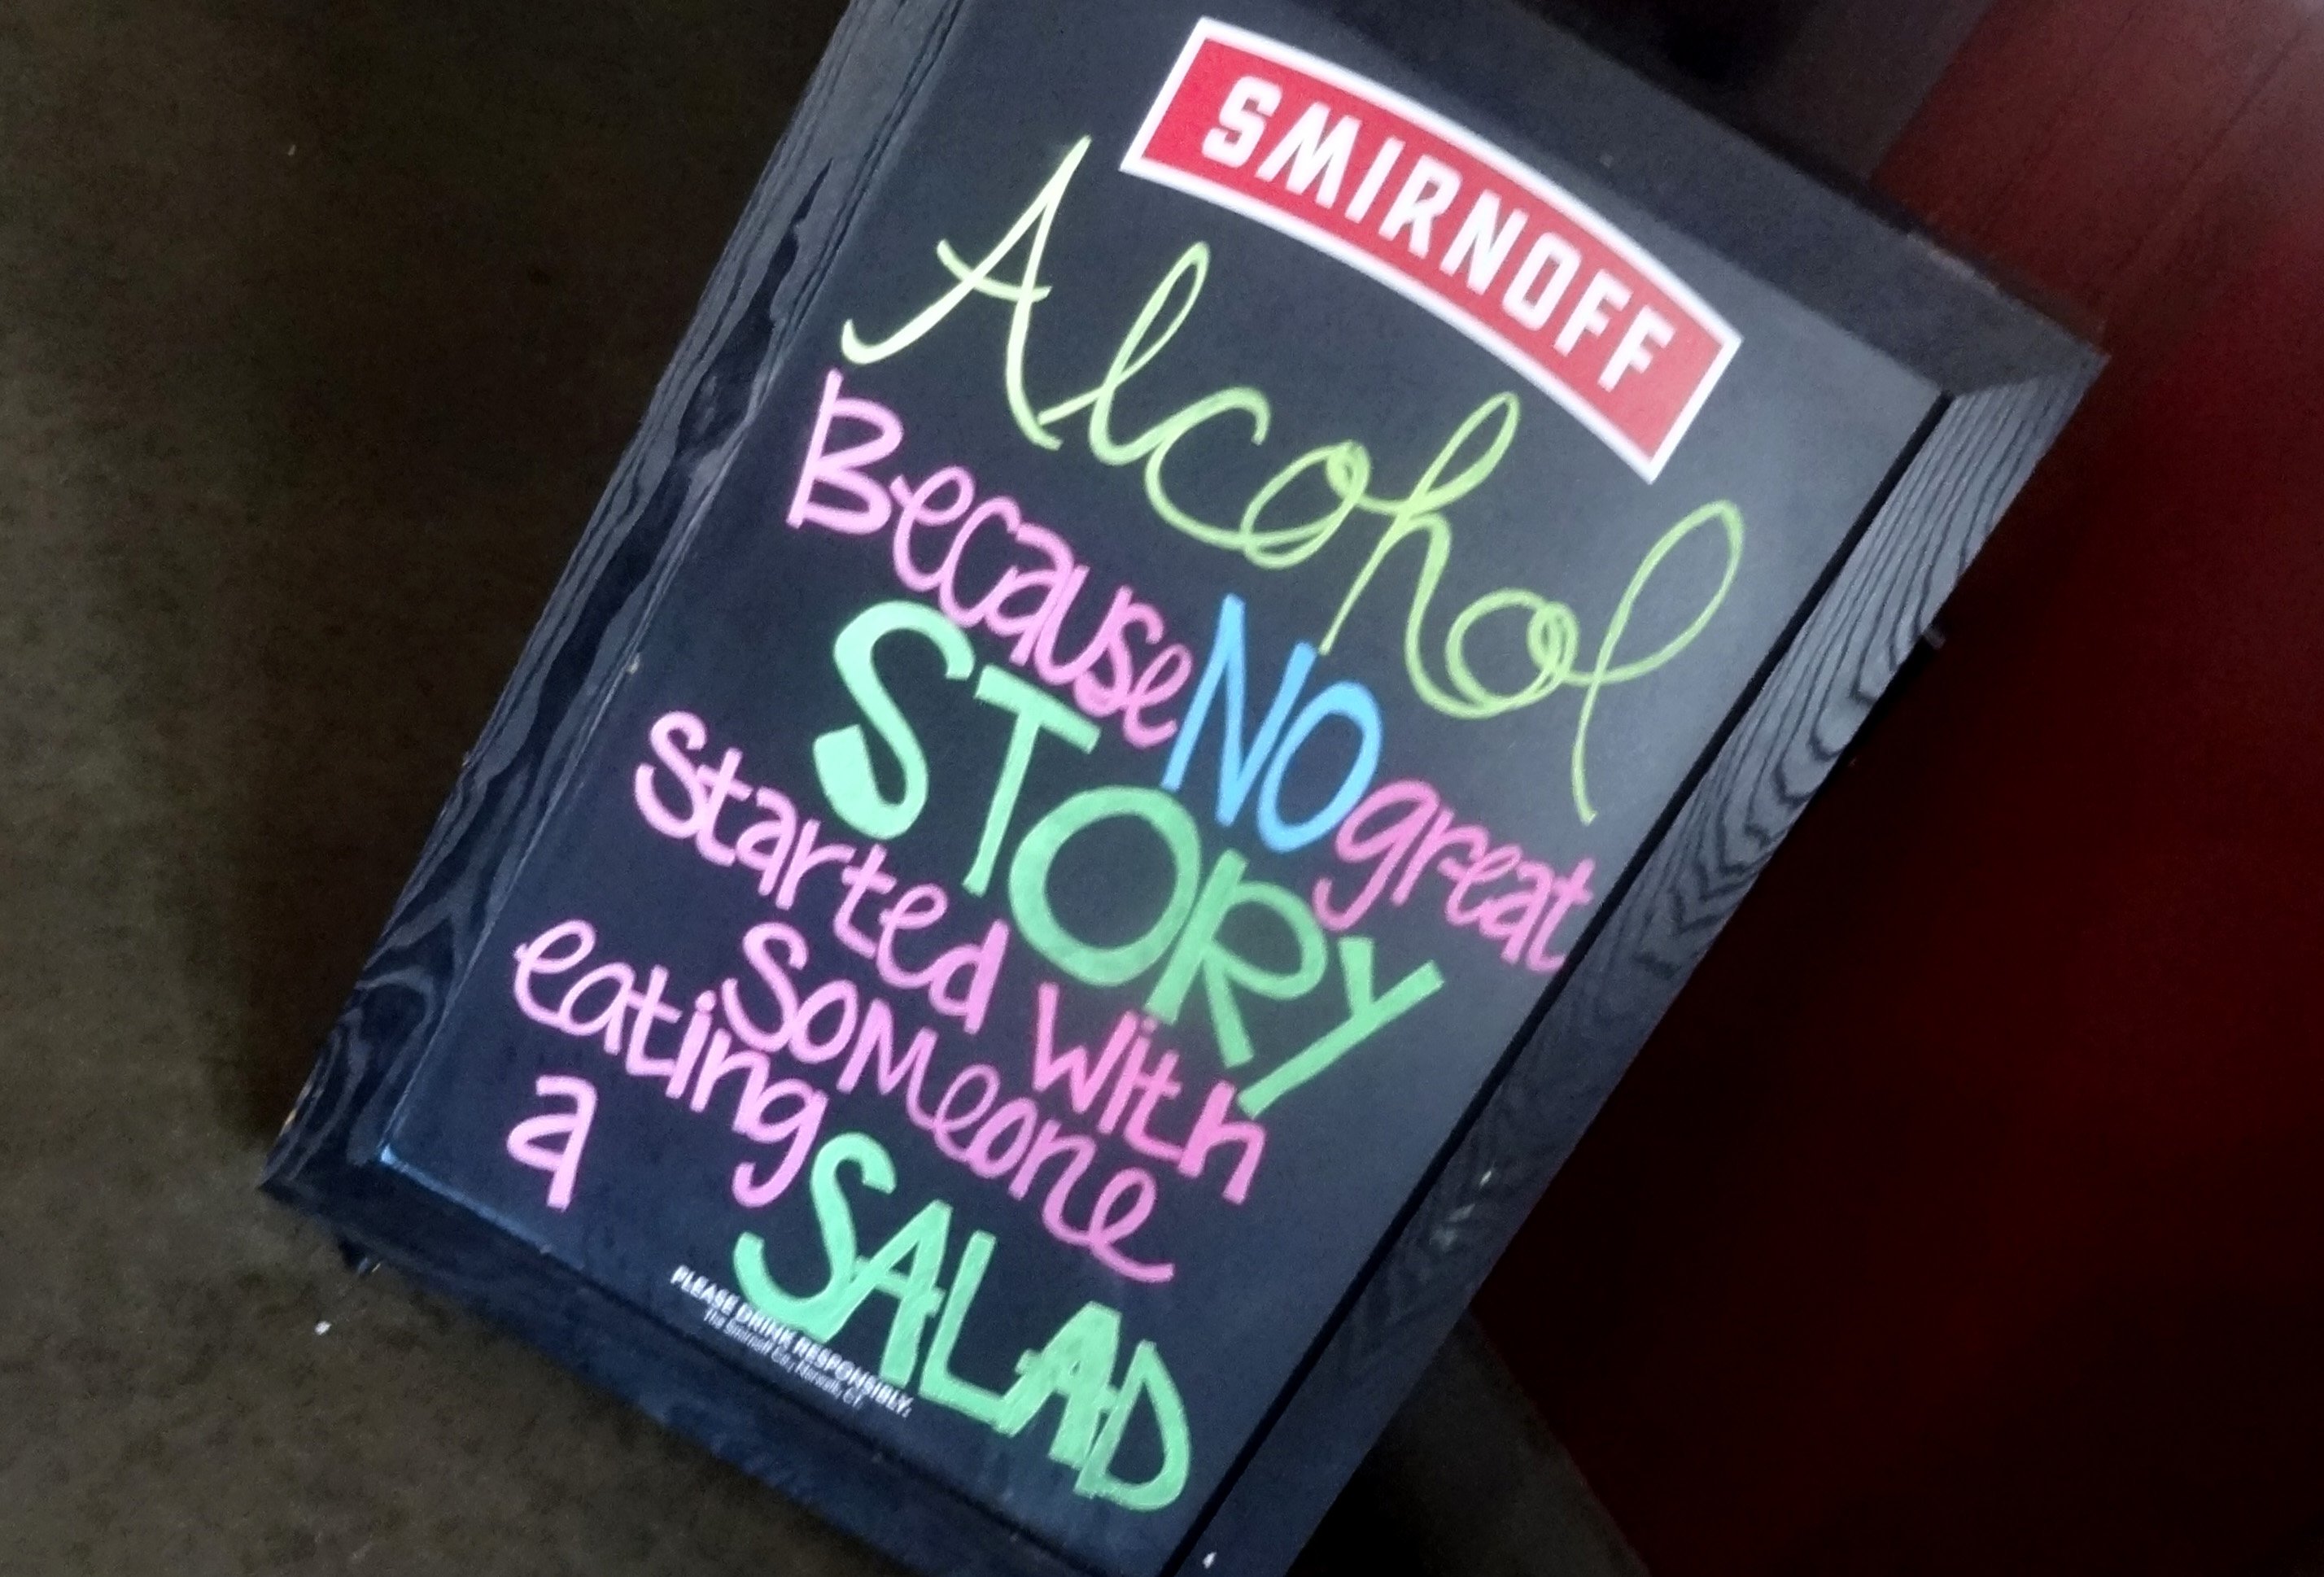 SMIRNOFF
Alcohol
Because NO great
STORY
started with
someone
eating
a SALAD
PLEASE DRINK RESPONSIBLY.
The Smirnoff Co., Norwalk, CT.